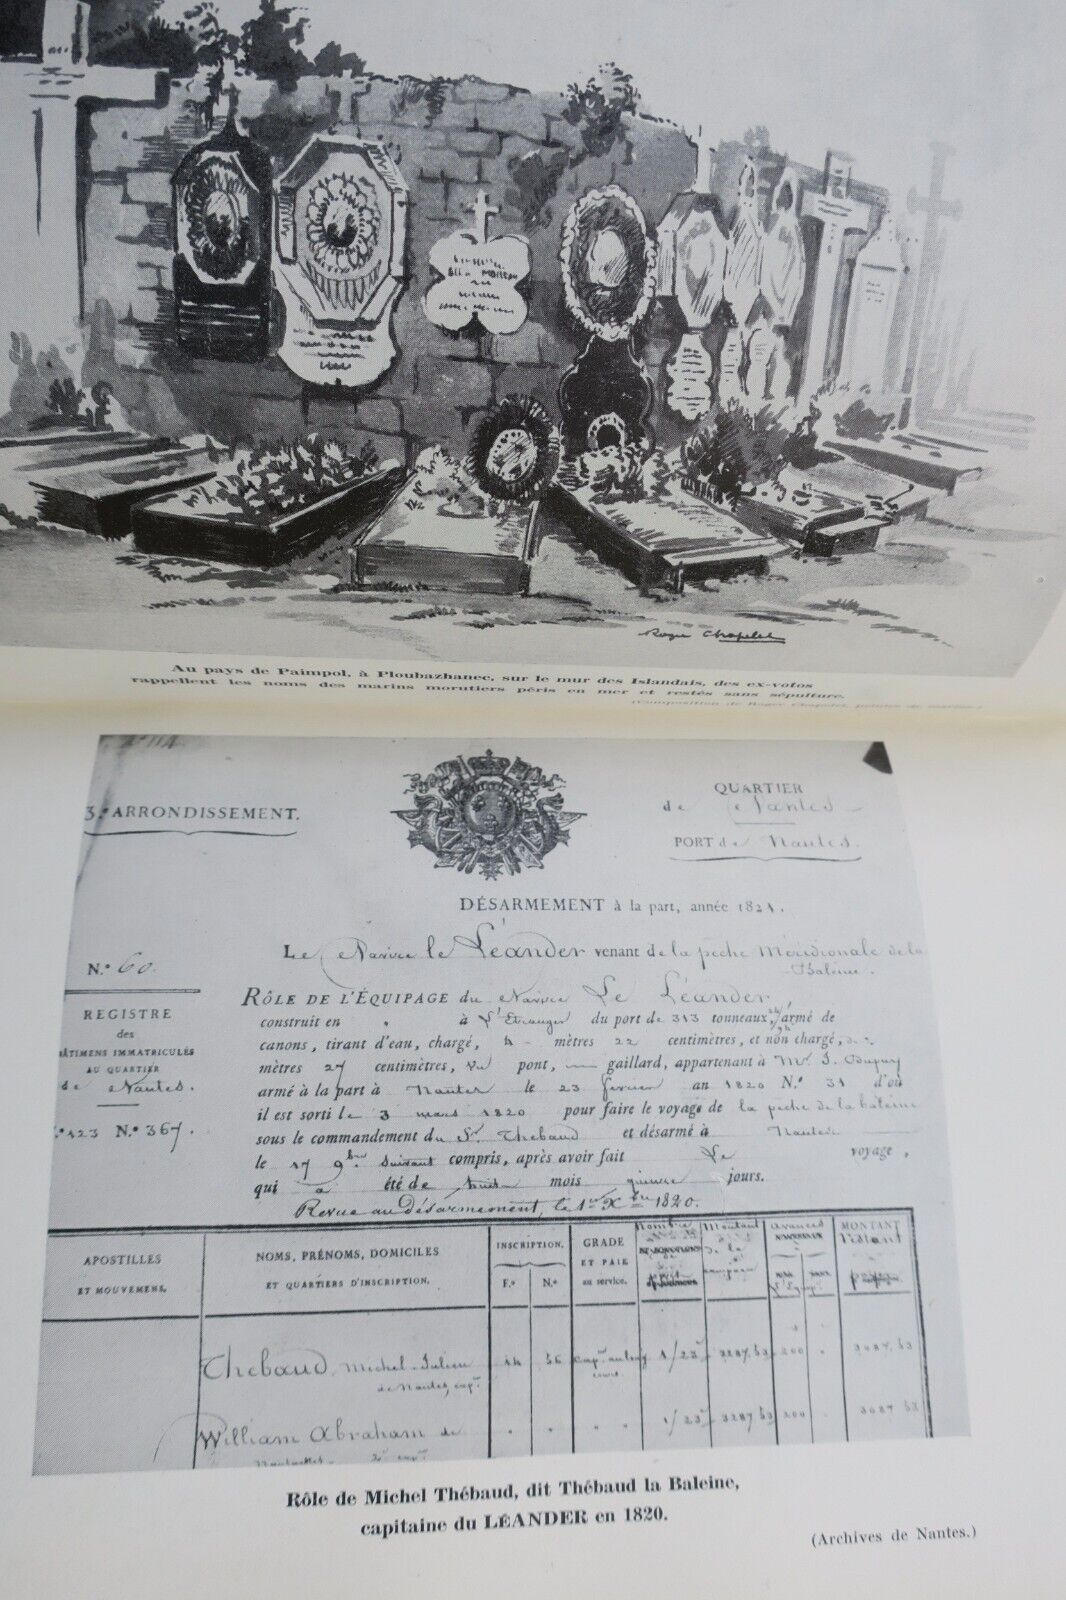 Roger Chapelet
Au pays de Paimpol, à Ploubazhanec, sur le mur des Islandais, des ex-votos
rappellent les noms des marins morutiers péris en mer et restés sans sépulture.
(Composition de Roger Chapelet, peintre de marine.)
3.e ARRONDISSEMENT.
QUARTIER
de Nantes
PORT de Nantes.
DÉSARMEMENT à la part, année 1821.
Le Navire le Léander venant de la pêche Méridionale de la
Baleine.
N.º 60.
RÔLE DE L'ÉQUIPAGE du Navire Le Léander
REGISTRE
des
BÂTIMENS IMMATRICULÉS
AU QUARTIER
de Nantes.
N.º 367.
construit en à L'Etranger du port de 313 tonneaux, armé de
canons, tirant d'eau, chargé, 4 mètres 22 centimètres, et non chargé, de
mètres 27 centimètres, un pont, gaillard, appartenant à Mr J. Dupuy
armé à la part à Nantes le 23 février an 1820 N.º 31 d'où
il est sorti le 3 mars 1820 pour faire le voyage de la pêche de la baleine
sous le commandement du Sr Thebaud et désarmé à Nantes
le 17 9bre suivant compris, après avoir fait Le voyage,
qui a été de huit mois quinze jours.
Revue au désarmement, le 1er Xbre 1820.
APOSTILLES
ET MOUVEMENS.
NOMS, PRÉNOMS, DOMICILES
ET QUARTIERS D'INSCRIPTION.
INSCRIPTION.
F.º N.º
GRADE
ET PAIE
au service.
Nombre
Montant
de la
campagne
avances
MONTANT
Thebaud, Michel-Julien 14 56 1/23 3287,53 200 3087,53
de Nantes, capne
William Abraham de 1/23 3287 53 200 3087 53
Rôle de Michel Thébaud, dit Thébaud la Baleine,
capitaine du LÉANDER en 1820.
(Archives de Nantes.)